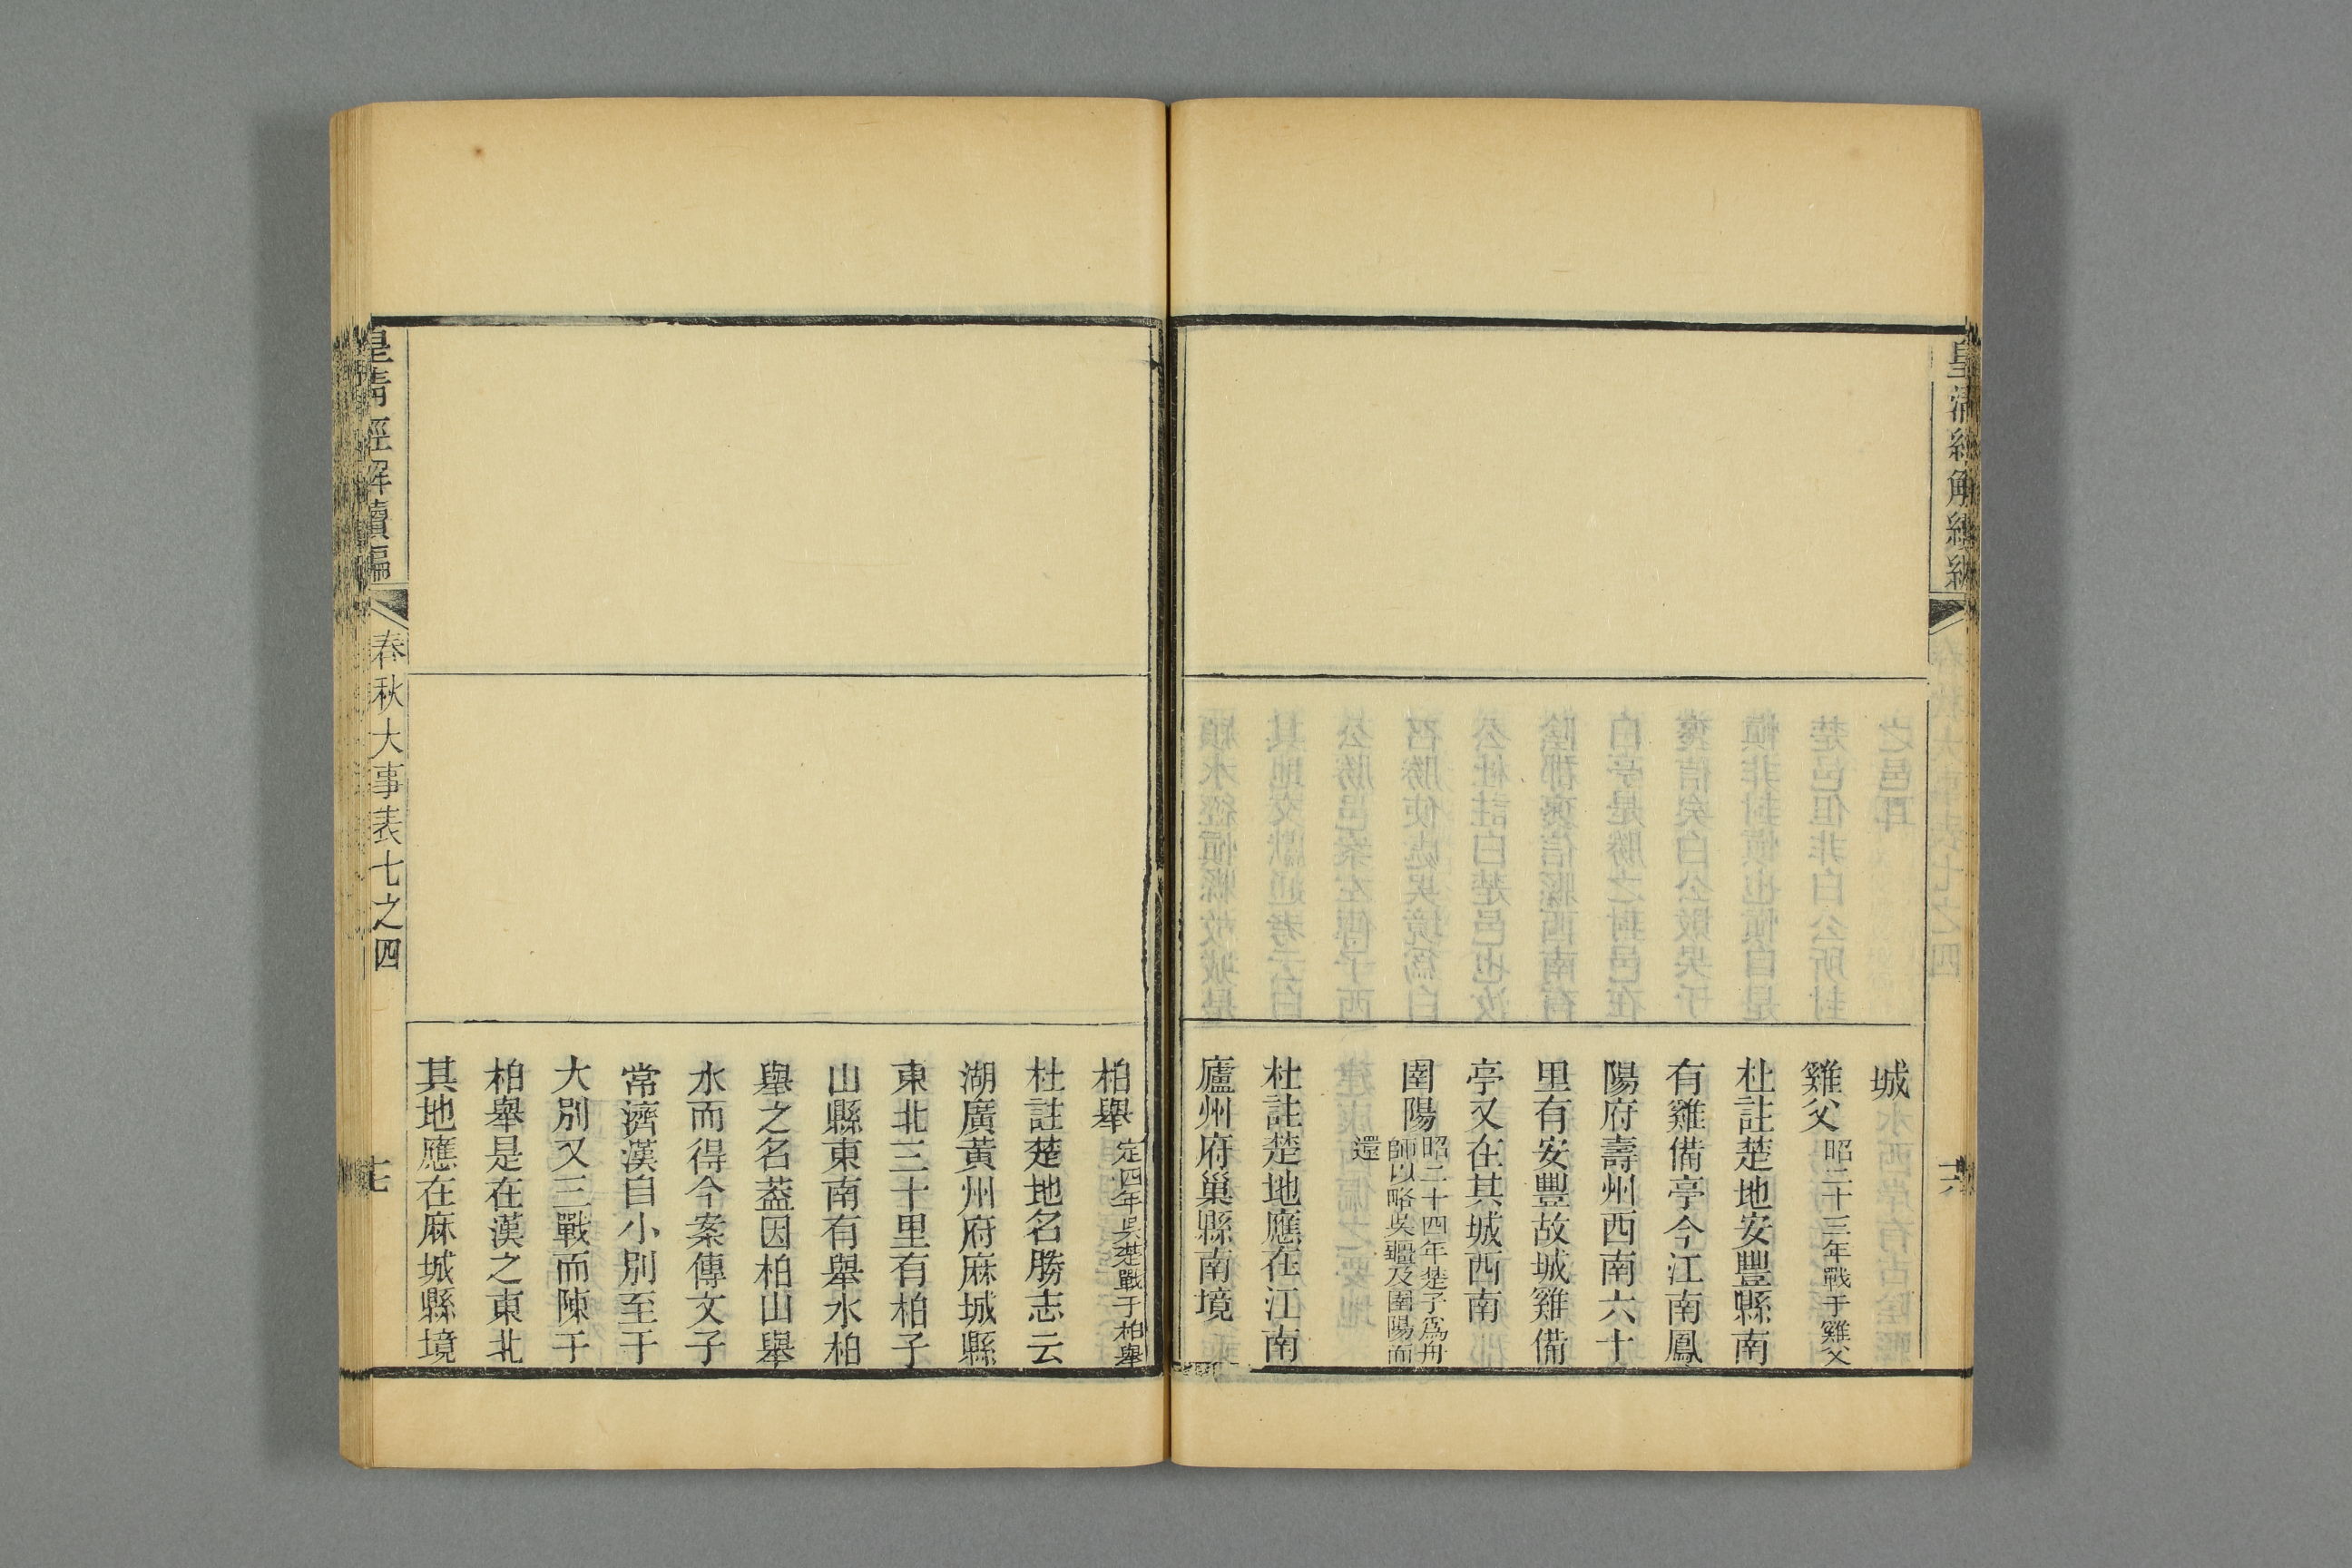 城
雞父昭二十三年戰于雞父
杜註楚地安豐縣南
有雞備亭今江南鳳
陽府壽州西南六十
里有安豐故城雞備
亭又在其城西南
圉陽昭二十四年楚子爲舟
師以略吳疆及圉陽而
還
杜註楚地應在江南
廬州府巢縣南境
柏舉定四年吳楚戰于柏舉
杜註楚地名勝志云
湖廣黃州府麻城縣
東北三十里有柏子
山縣東南有舉水柏
舉之名葢因柏山舉
水而得今案傳文子
常濟漢自小別至于
大別又三戰而陳于
柏舉是在漢之東北
其地應在麻城縣境
皇清經解續編
春秋大事表七之四